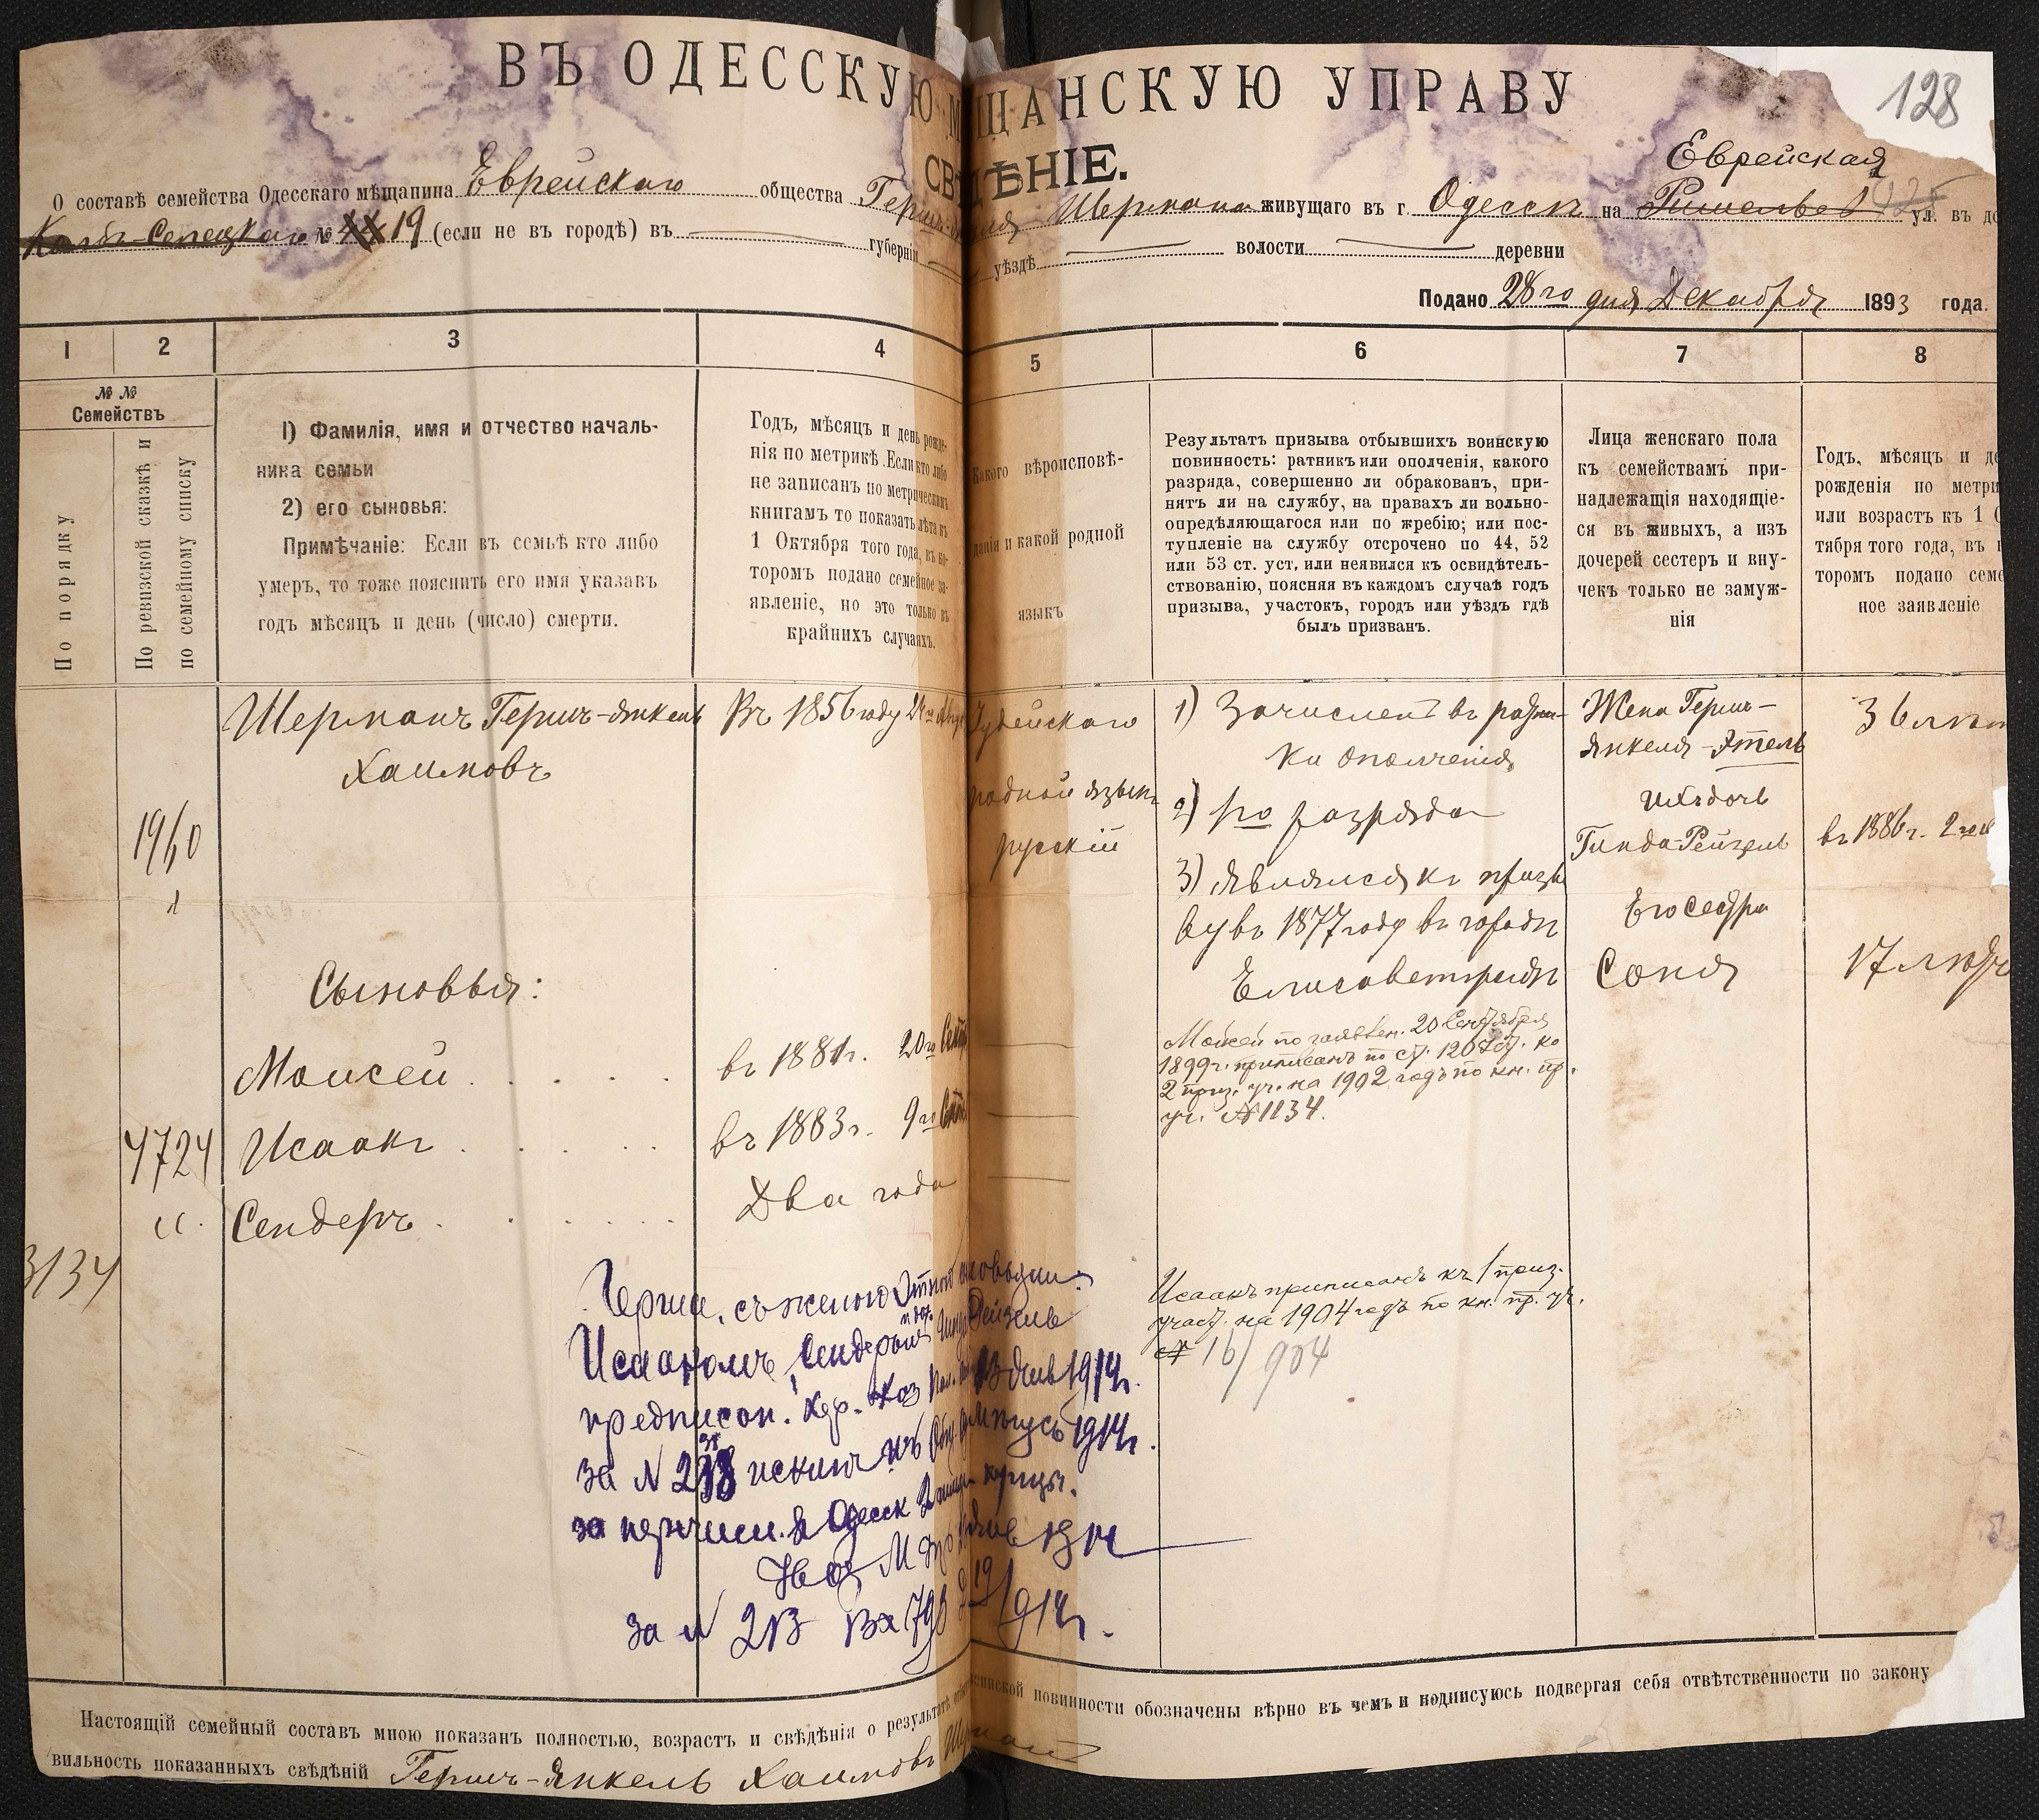 128
ВЪ ОДЕССКУЮ МѢЩАНСКУЮ УПРАВУ
СВѢДѢНІЕ.
Еврейская
О составѣ семейства Одесскаго мѣщанина Еврейскаго общества Гершъ-Янкеля Шермана живущаго въ г. Одессѣ на ул. въ до
№ 19 (если не въ городѣ) въ губерніи уѣздѣ волости деревни
Подано 28го дня Декабря 1893 года.
1 2 3 4 5 6 7 8
№ №
Семействъ
По порядку
По ревизской сказкѣ и
по семейному списку
1) Фамилія, имя и отчество началь-
ника семьи
2) его сыновья:
Примѣчаніе: Если въ семьѣ кто либо
умеръ, то тоже пояснить его имя указавъ
годъ мѣсяцъ и день (число) смерти.
Годъ, мѣсяцъ и день рожде-
нія по метрикѣ. Если кто либо
не записанъ по метрическимъ
книгамъ то показать лѣта къ
1 Октября того года, въ ко-
торомъ подано семейное за-
явленіе, но это только въ
крайнихъ случаяхъ.
Какого вѣроисповѣ-
данія и какой родной
языкъ
Результатъ призыва отбывшихъ воинскую
повинность: ратникъ или ополченія, какого
разряда, совершенно ли обракованъ, при-
нятъ ли на службу, на правахъ ли вольно-
опредѣляющагося или по жребію; или пос-
тупленіе на службу отсрочено по 44, 52
или 53 ст. уст, или неявился къ освидѣтель-
ствованію, поясняя въ каждомъ случаѣ годъ
призыва, участокъ, городъ или уѣздъ гдѣ
былъ призванъ.
Лица женскаго пола
къ семействамъ при-
надлежащія находящіе-
ся въ живыхъ, а изъ
дочерей сестеръ и вну-
чекъ только не замуж-
нія
Годъ, мѣсяцъ и де
рожденія по метри
или возрастъ къ 1 О
тября того года, въ к
торомъ подано семе
ное заявленіе
Шерманъ Гершъ-Янкель
Хаимовъ
Въ 1856 году
Іудейскаго
родной языкъ
русскій
1) Зачисленъ въ ратни-
ки ополченія
2) 1го разряда
3) Являлся къ призы
ву въ 1877 году въ городѣ
Елисаветградѣ
Жена Гершъ-
Янкеля-Этель
ихъ дочь
Гинда-Рейзель
Его сестра
Соня
36 лѣтъ
въ 1886 г.
17 лѣтъ
1960
1
Сыновья:
Моисей
въ 1881 г. 20го Сент
Моисей по заявлен. 20 Сентября
1899 г. приписанъ по ст. къ
2 приз. уч. на 1902 годъ по кн. пр.
уч. №1134.
4724
Исаакъ
въ 1883 г. 9го Сент
Сендеръ
Два года
3134
Герша, съ женою сыновьями
Исаакомъ, Сендеромъ Рейзель
предписан. Хер. Каз. 1914г.
за № исключ. изъ 1914г.
за перечисл. въ Одесск купцы.
1914
за № 213 Вх 1914г.
Исаакъ приписанъ къ 1 приз.
участ. на 1904 годъ по кн. пр. уч.
№ 16/904
Настоящій семейный составъ мною показанъ полностью, возрастъ и свѣдѣнія о результатѣ воинской повинности обозначены вѣрно въ чемъ и подписуюсь подвергая себя отвѣтственности по закону
вильность показанныхъ свѣдѣній Гершъ-Янкель Хаимовъ Шерманъ